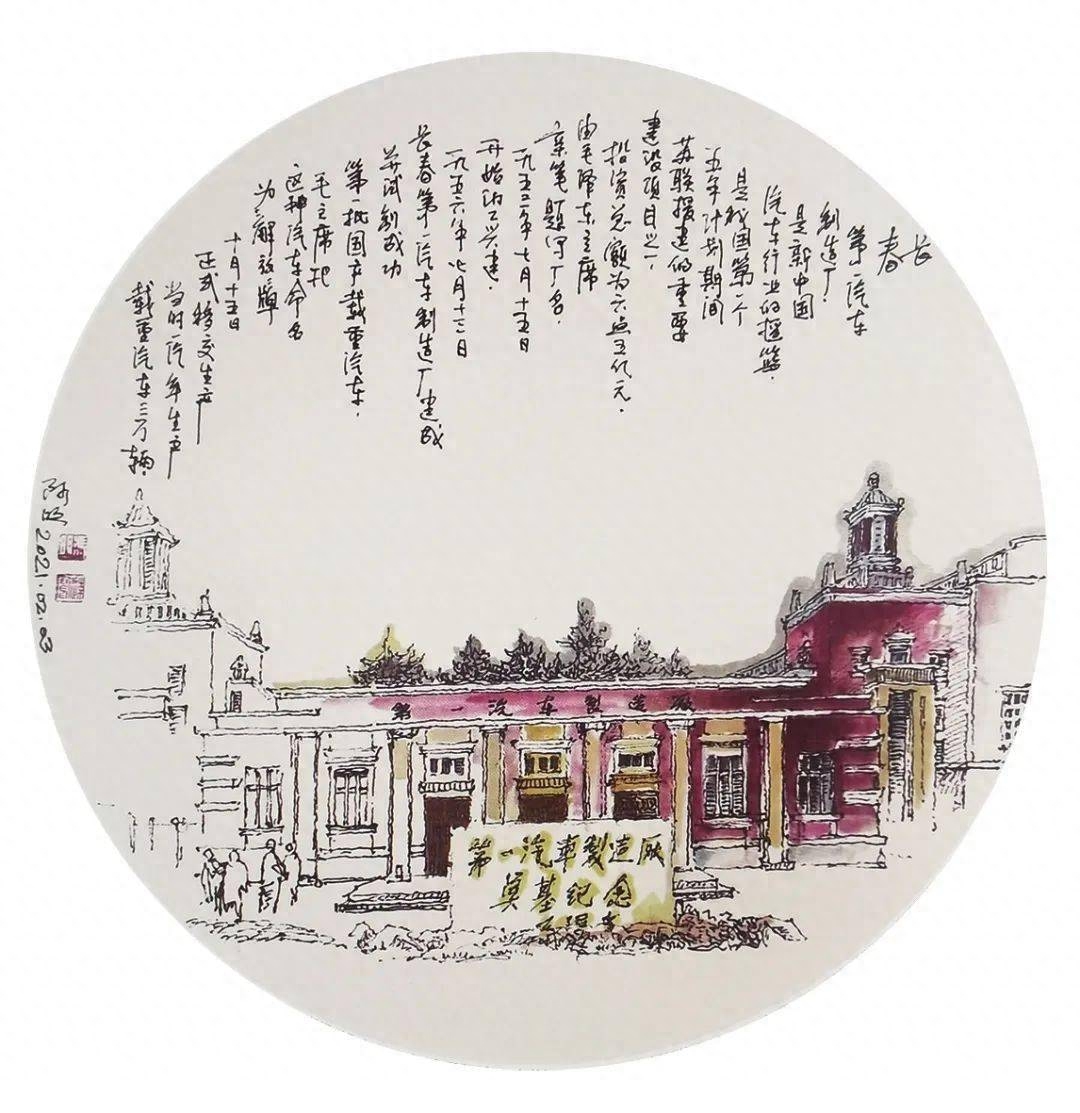 长春
第一汽车
制造厂.
是新中国
汽车行业的摇篮.
是我国第一个
五年计划期间
苏联援建的重要
建设项目之一,
投资总额为六点五亿元.
由毛泽东主席
亲笔题写厂名.
一九五三年七月十五日
开始动工兴建.
一九五六年七月十三日
长春第一汽车制造厂建成
并试制成功
第一批国产载重汽车.
毛主席把
这种汽车命名
为“解放”牌
十月十五日
正式移交生产
当时一汽年生产
载重汽车三万辆.
2021.02.03
第一汽车製造厰
第一汽車製造厰
奠基纪念